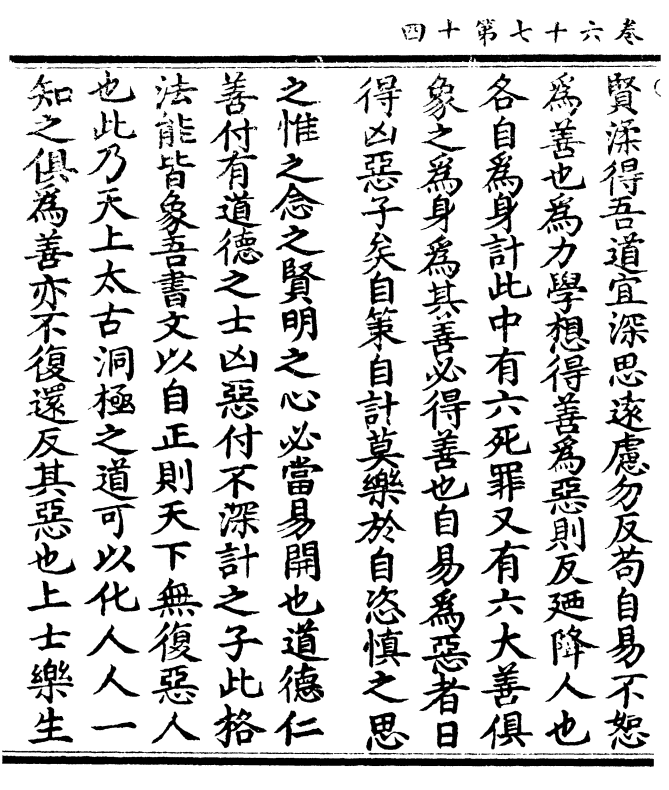 卷六十七第十四
賢渘得吾道宜深思遠慮勿反苟自易不恕
爲善也爲力學想得善爲惡則反廼降人也
各自爲身計此中有六死罪又有六大善俱
象之爲身爲其善必得善也自易爲惡者日
得凶惡子矣自策自計莫樂於自恣愼之思
之惟之念之賢明之心必當易開也道德仁
善付有道德之士凶惡付不深計之子此格
法能皆象吾書文以自正則天下無復惡人
也此乃天上太古洞極之道可以化人人一
知之俱爲善亦不復還反其惡也上士樂生